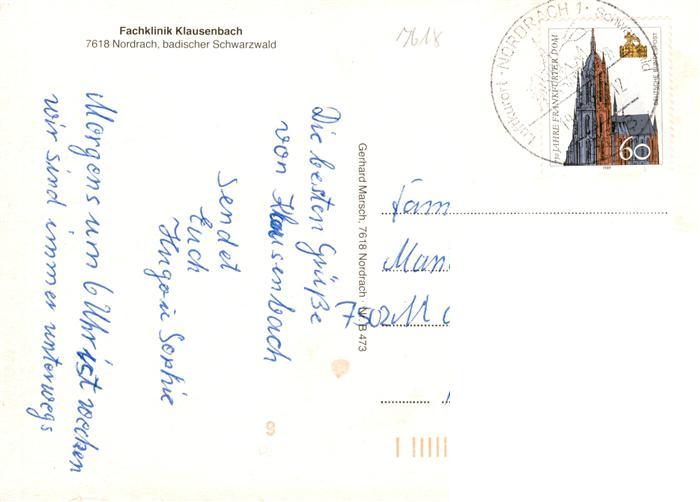 Fachklinik Klausenbach
7618 Nordrach, badischer Schwarzwald
7618
Luftkurort · NORDRACH 1 ·
750 JAHRE FRANKFURTER DOM
DEUTSCHE BUNDESPOST
60
1989
Die besten Grüße
von Klausenbach
sendet
Euch
Hugo u Sophie
Morgens um 6 Uhr ist wecken
wir sind immer unterwegs
Gerhard Marsch, 7618 Nordrach
B 473
Fam
9